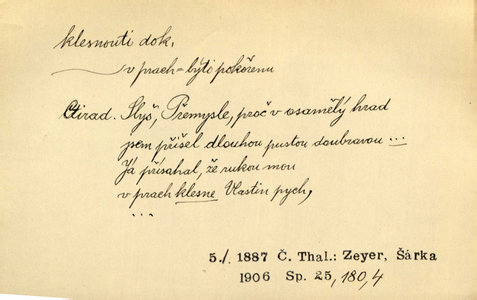 klesnouti dok.
v prach = býti pokořenu
Ctirad. Slyš, Přemysle, proč v osamělý hrad
jsem přišel dlouhou pustou doubravou ...
Já přísahal, že rukou mou
v prach klesne Vlastin pych,
...
5./ 1887 Č. Thal.: Zeyer, Šárka
1906 Sp. 25, 180, 4